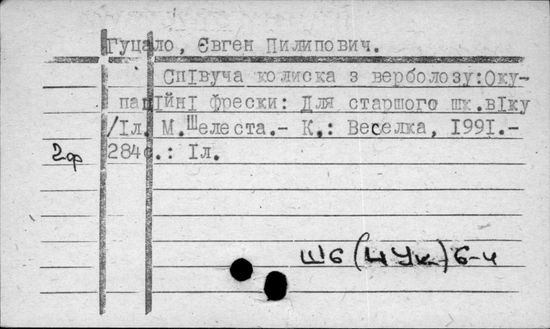 Гуцало, Євген Пилипович.
Співуча колиска з верболозу:Оку-
паційні фрески: Для старшого шк.віку
/Іл. М.Шелеста.- К.: Веселка, 1991.-
2ф 284с.: Іл.
Ш6(4Ук)6-4